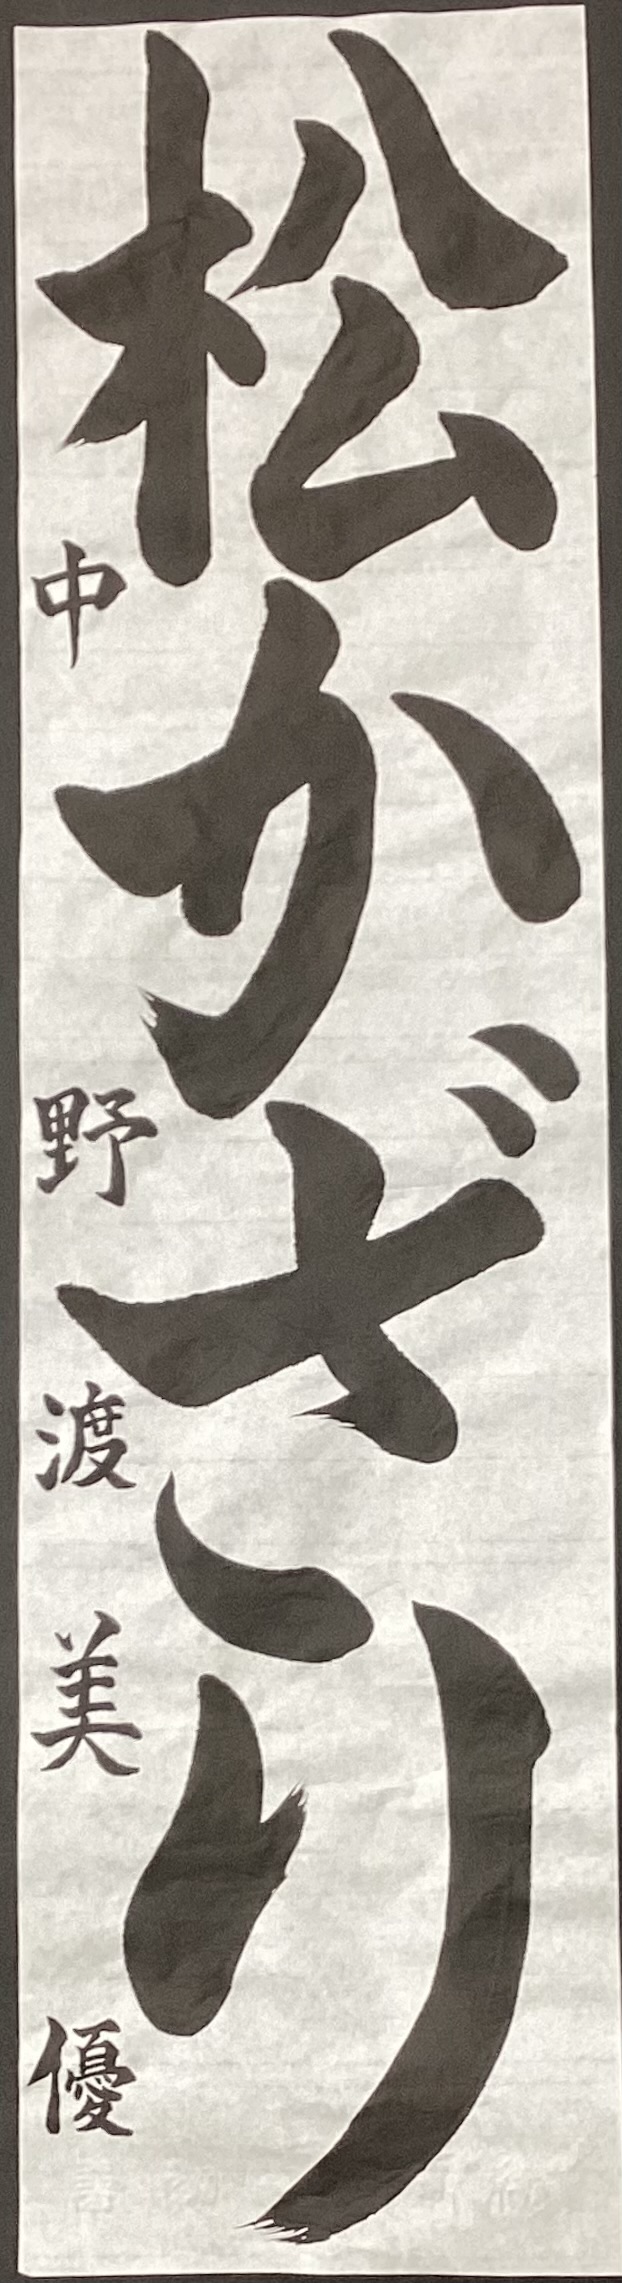 松かざり
中野渡美優